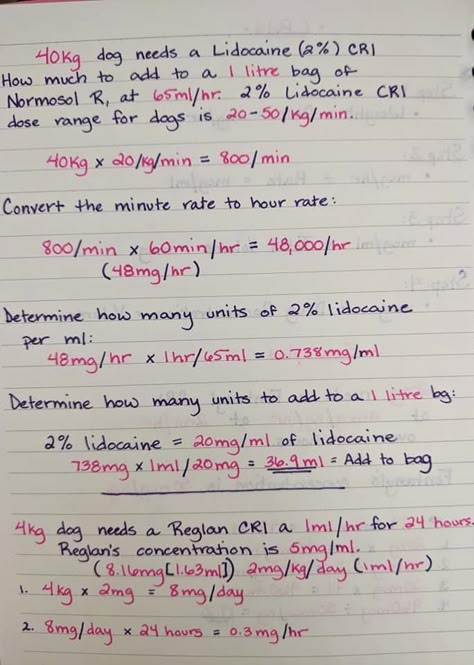 40kg dog needs a Lidocaine (2%) CRI
How much to add to a 1 litre bag of
Normosol R, at 65ml/hr. 2% Lidocaine CRI
dose range for dogs is 20-50/kg/min.
40kg x 20/kg/min = 800/min
Convert the minute rate to hour rate:
800/min x 60min/hr = 48,000/hr
(48mg/hr)
Determine how many units of 2% lidocaine
per ml:
48mg/hr x 1hr/65ml = 0.738mg/ml
Determine how many units to add to a 1 litre bg:
2% lidocaine = 20mg/ml of lidocaine
738mg x 1ml/20mg = 36.9ml = Add to bag
4kg dog needs a Reglan CRI a 1ml/hr for 24 hours.
Reglan's concentration is 5mg/ml.
(8.16mg[1.63ml]) 2mg/kg/day (1ml/hr)
1. 4kg x 2mg = 8mg/day
2. 8mg/day x 24 hours = 0.3mg/hr